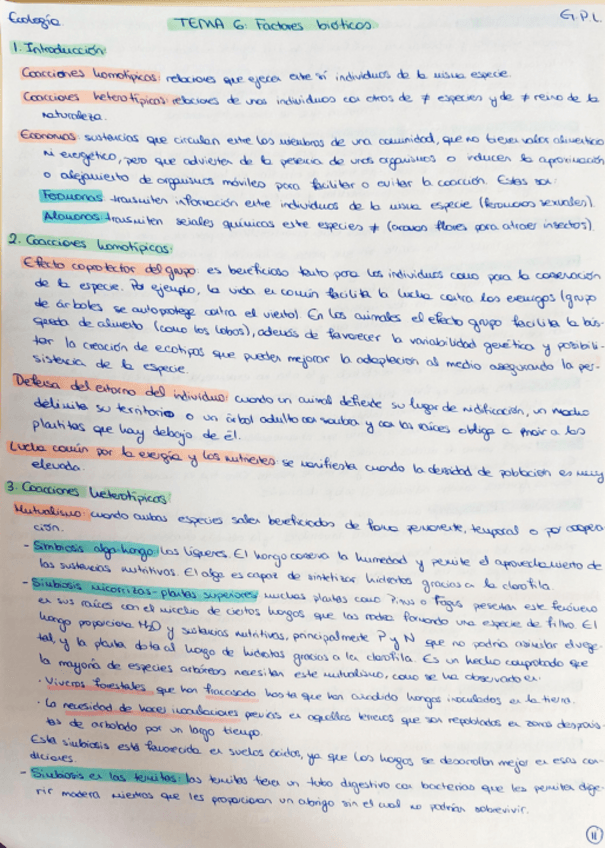 Ecología
G.P.L.
TEMA 6: Factores bióticos
1. Introducción:
Coacciones homotípicas: relaciones que ejercen entre sí individuos de la misma especie.
Coacciones heterotípicas: relaciones de unos individuos con otros de ≠ especies y de ≠ reino de la
naturaleza.
sustancias que circulan entre los miembros de una comunidad, que no tienen valor alimenticio
ni energético, pero que advierten de la presencia de unos organismos o inducen la aproximación
o alejamiento de organismos móviles para facilitar o evitar la coacción. Estas son:
Feromonas transmiten información entre individuos de la misma especie (feromonas sexuales).
Alomonas transmiten señales químicas entre especies ≠ (aromas flores para atraer insectos).
2. Coacciones homotípicas:
Efecto coprotector del grupo: es beneficioso tanto para los individuos como para la conservación
de la especie. Por ejemplo, la vida en común facilita la lucha contra los enemigos (grupo
de árboles se autoprotege contra el viento). En los animales el efecto grupo facilita la bús-
queda de alimento (como los lobos), además de favorecer la variabilidad genética y posibili-
tar la creación de ecotipos que pueden mejorar la adaptación al medio asegurando la per-
sistencia de la especie.
Defensa del entorno del individuo: cuando un animal defiende su lugar de nidificación, un macho
delimita su territorio o un árbol adulto con sombra y con las raíces obliga a morir a las
plantitas que hay debajo de él.
Lucha común por la energía y los nutrientes se manifiesta cuando la densidad de población es muy
elevada.
3. Coacciones heterotípicas
Mutualismo: cuando ambas especies salen beneficiadas de forma permanente, temporal o por coopera-
ción.
- Simbiosis alga-hongo: Los líquenes. El hongo conserva la humedad y permite el aprovechamiento de
las sustancias nutritivas. El alga es capaz de sintetizar hidratos gracias a la clorofila.
- Simbiosis micorrizas-plantas superiores: muchas plantas como Pinus o Fagus presentan este fenómeno
en sus raíces con el micelio de ciertos hongos que las rodea formando una especie de filtro. El
hongo proporciona H2O y sustancias nutritivas, principalmente P y N que no podría asimilar el vege-
tal, y la planta dota al hongo de hidratos gracias a la clorofila. Es un hecho comprobado que
la mayoría de especies arbóreas necesitan este mutualismo, como se ha observado en:
· Viveros forestales que han fracasado hasta que han añadido hongos inoculados en la tierra.
· La necesidad de hacer inoculaciones previas en aquellos terrenos que son repoblados en zonas desprovis-
tas de arbolado por un largo tiempo.
Esta simbiosis está favorecida en suelos ácidos, ya que los hongos se desarrollan mejor en esas con-
diciones.
- Simbiosis en las termitas: las termitas tienen un tubo digestivo con bacterias que les permiten dige-
rir madera mientras que les proporcionan un abrigo sin el cual no podrían sobrevivir.
11